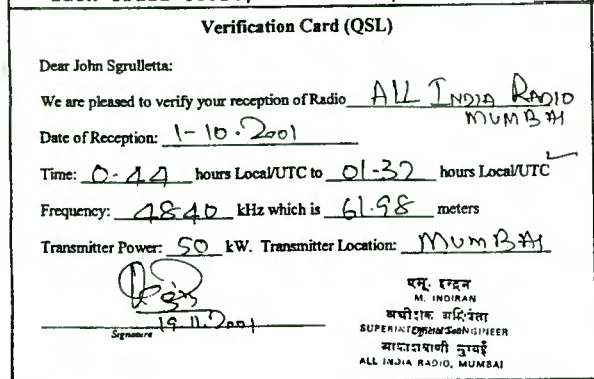 Verification Card (QSL)
Dear John Sgrulletta:
We are pleased to verify your reception of Radio ALL INDIA RADIO
MUMBAI
Date of Reception: 1-10-2001
Time: 0-44 hours Local/UTC to 01-32 hours Local/UTC
Frequency: 4840 kHz which is 61.98 meters
Transmitter Power: 50 kW. Transmitter Location: MUMBAI
19.11.2001
Signature
एम. इन्द्रन
M. INDIRAN
अधीक्षक अभियंता
SUPERINTENDING ENGINEER
आकाशवाणी मुम्बई
ALL INDIA RADIO, MUMBAI